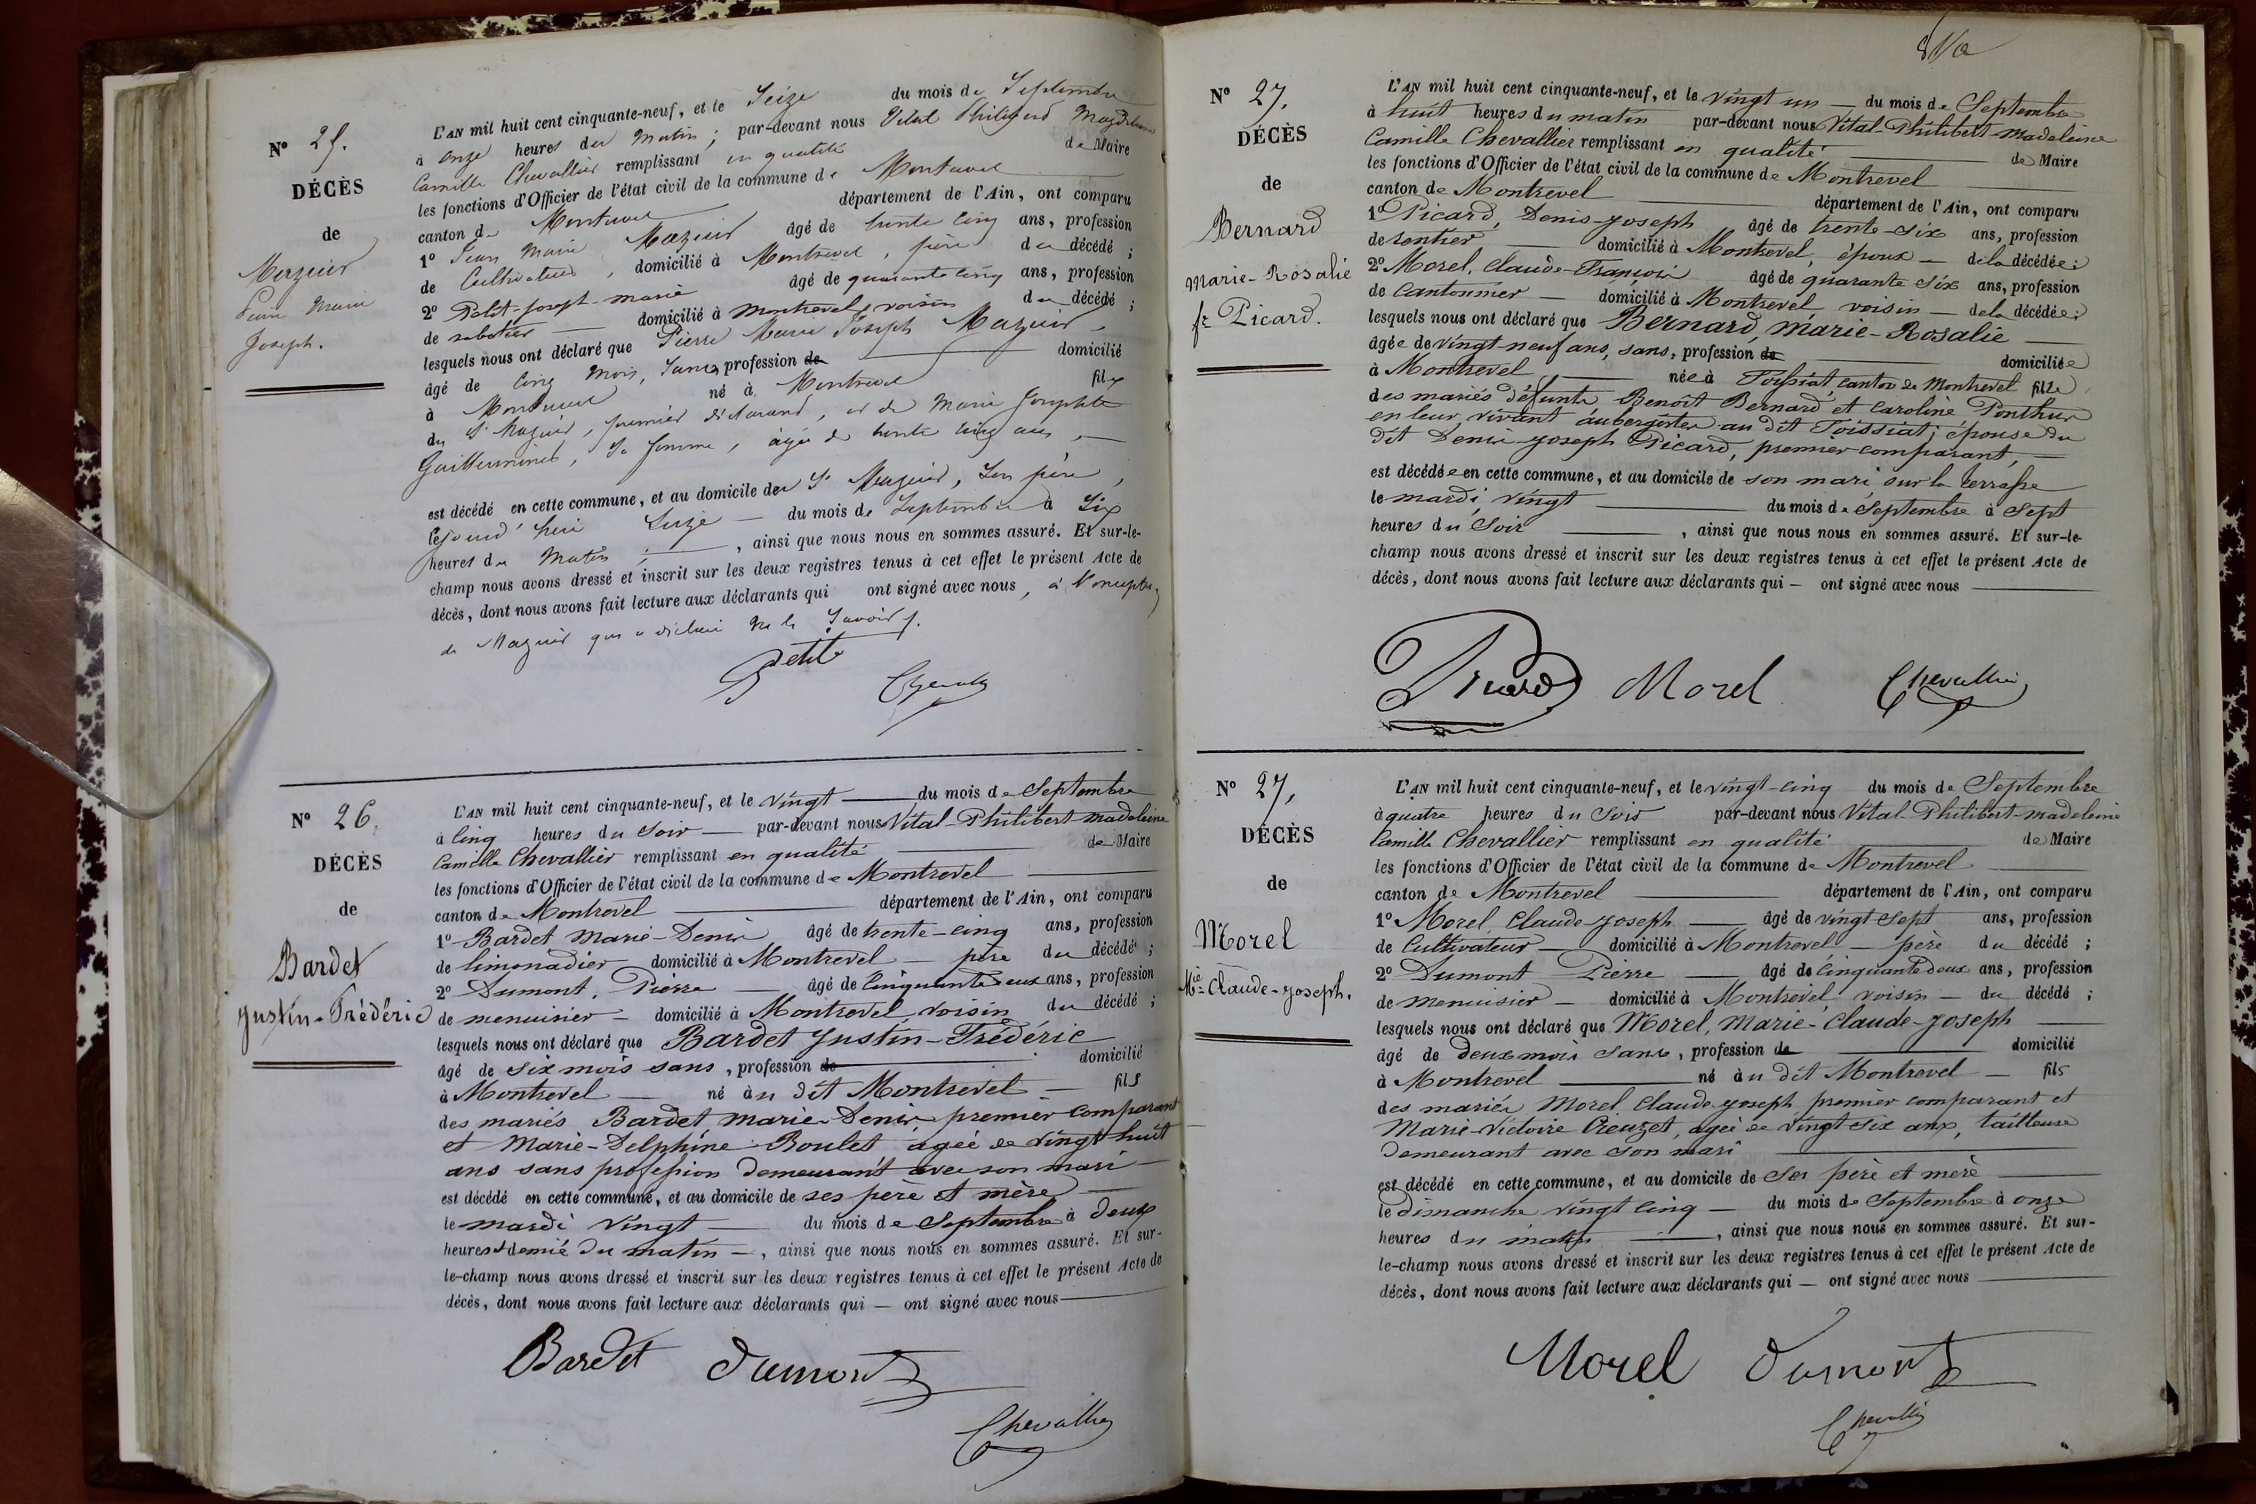 N° 25.
DÉCÈS
de
Mazuir
Pierre Marie
Joseph.
L'AN mil huit cent cinquante-neuf, et le Seize du mois de Septembre
à onze heures du matin ; par-devant nous Vital Philibert Magdeleine
Camille Chevallier remplissant en qualité de Maire
les fonctions d'Officier de l'état civil de la commune de Montrevel
canton de Montrevel département de l'Ain, ont comparu
1° Jean Marie Mazuir âgé de trente cinq ans, profession
de Cultivateur, domicilié à Montrevel, père du décédé ;
2° Petit-Joseph-marie âgé de quarante cinq ans, profession
de sabotier domicilié à montrevel, voisin du décédé ;
lesquels nous ont déclaré que Pierre Marie Joseph Mazuir
âgé de cinq mois, sans, profession de domicilié
à Montrevel né à Montrevel fils
du Sr Mazuir, premier déclarant, et de Marie Josephte
Guillerminet, sa femme, âgée de trente cinq ans,
est décédé en cette commune, et au domicile du Sr Mazuir, son père,
cejourd'hui Seize du mois de Septembre à Six
heures du Matin ; , ainsi que nous nous en sommes assuré. Et sur-le-
champ nous avons dressé et inscrit sur les deux registres tenus à cet effet le présent Acte de
décès, dont nous avons fait lecture aux déclarants qui ont signé avec nous, à l'exception
de Mazuir qui a déclaré ne le Savoir.
Petit
Chevallier
N° 26.
DÉCÈS
de
Bardet
Justin-Frédéric
L'AN mil huit cent cinquante-neuf, et le vingt du mois de Septembre
à cinq heures du soir par-devant nous Vital-Philibert-madeleine
Camille Chevallier remplissant en qualité de Maire
les fonctions d'Officier de l'état civil de la commune de Montrevel
canton de Montrevel département de l'Ain, ont comparu
1° Bardet Marie-Denis âgé de trente-cinq ans, profession
de limonadier domicilié à Montrevel père du décédé ;
2° Dumont, Pierre âgé de cinquante deux ans, profession
de menuisier domicilié à Montrevel, voisin du décédé ;
lesquels nous ont déclaré que Bardet Justin-Frédéric
âgé de six mois sans, profession de domicilié
à Montrevel né au dit Montrevel fils
des mariés Bardet, marie-Denis, premier comparant
et Marie-Delphine Boulet agée de vingt huit
ans sans profession demeurant avec son mari
est décédé en cette commune, et au domicile de ses père et mère
le mardi vingt du mois de Septembre à deux
heures et demie du matin, ainsi que nous nous en sommes assuré. Et sur-
le-champ nous avons dressé et inscrit sur les deux registres tenus à cet effet le présent Acte de
décès, dont nous avons fait lecture aux déclarants qui ont signé avec nous
Bardet Dumont
Chevallier
N° 27.
DÉCÈS
de
Bernard
Marie-Rosalie
fe Picard.
L'AN mil huit cent cinquante-neuf, et le vingt un du mois de Septembre
à huit heures du matin par-devant nous Vital-Philibert-madeleine
Camille Chevallier remplissant en qualité de Maire
les fonctions d'Officier de l'état civil de la commune de Montrevel
canton de Montrevel département de l'Ain, ont comparu
1° Picard, Denis-Joseph âgé de trente-six ans, profession
de rentier domicilié à Montrevel, époux de la décédée ;
2° Morel, Claude-François âgé de quarante six ans, profession
de Cantonnier domicilié à Montrevel voisin de la décédée ;
lesquels nous ont déclaré que Bernard, Marie-Rosalie
âgée de vingt-neuf ans, sans, profession de domiciliée
à Montrevel née à Foissiat canton de Montrevel fille
des mariés défunts Benoît Bernard et Caroline Ponthus
en leur vivant aubergistes au dit Foissiat ; épouse du
dit Denis-Joseph Picard, premier comparant,
est décédée en cette commune, et au domicile de son mari sur la terrasse
le mardi vingt du mois de Septembre à sept
heures du Soir, ainsi que nous nous en sommes assuré. Et sur-le-
champ nous avons dressé et inscrit sur les deux registres tenus à cet effet le présent Acte de
décès, dont nous avons fait lecture aux déclarants qui ont signé avec nous
Picard Morel Chevallier
N° 27,
DÉCÈS
de
Morel
Mie-Claude-Joseph.
L'AN mil huit cent cinquante-neuf, et le vingt-cinq du mois de Septembre
à quatre heures du Soir par-devant nous Vital-Philibert-madeleine
Camille Chevallier remplissant en qualité de Maire
les fonctions d'Officier de l'état civil de la commune de Montrevel
canton de Montrevel département de l'Ain, ont comparu
1° Morel, Claude-Joseph âgé de vingt sept ans, profession
de Cultivateur domicilié à Montrevel père du décédé ;
2° Dumont Pierre âgé de cinquante deux ans, profession
de menuisier domicilié à Montrevel voisin du décédé ;
lesquels nous ont déclaré que Morel, Marie-Claude-Joseph
âgé de deux mois sans, profession de domicilié
à Montrevel né au dit Montrevel fils
des mariés Morel Claude Joseph premier comparant et
Marie-Victoire Creuzet, agée de vingt six ans, tailleuse
demeurant avec son mari
est décédé en cette commune, et au domicile de ses père et mère
le dimanche vingt cinq du mois de Septembre à onze
heures du matin, ainsi que nous nous en sommes assuré. Et sur-
le-champ nous avons dressé et inscrit sur les deux registres tenus à cet effet le présent Acte de
décès, dont nous avons fait lecture aux déclarants qui ont signé avec nous
Morel Dumont
Chevallier